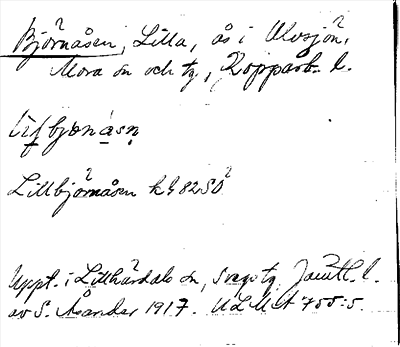 Björnåsen, Lilla, ås i Ulvsjön,
Mora sn och tg, Kopparb. l.
Lillbjörnåsen k 4 82 SO
Uppt. i Lillhärdals sn, Svegs tg, Jämtl. l.
av S. Åsander 1917. ULMA 755:5.